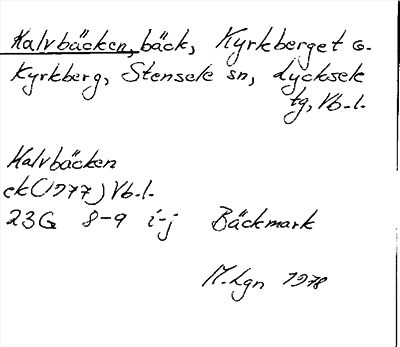 Kalvbäcken, bäck, Kyrkberget o.
Kyrkberg, Stensele sn, Lycksele
tg, Vb.l.
Kalvbäcken
ek (1977) Vb.l.
23G 8-9 i-j Bäckmark
M.Lgn 1978